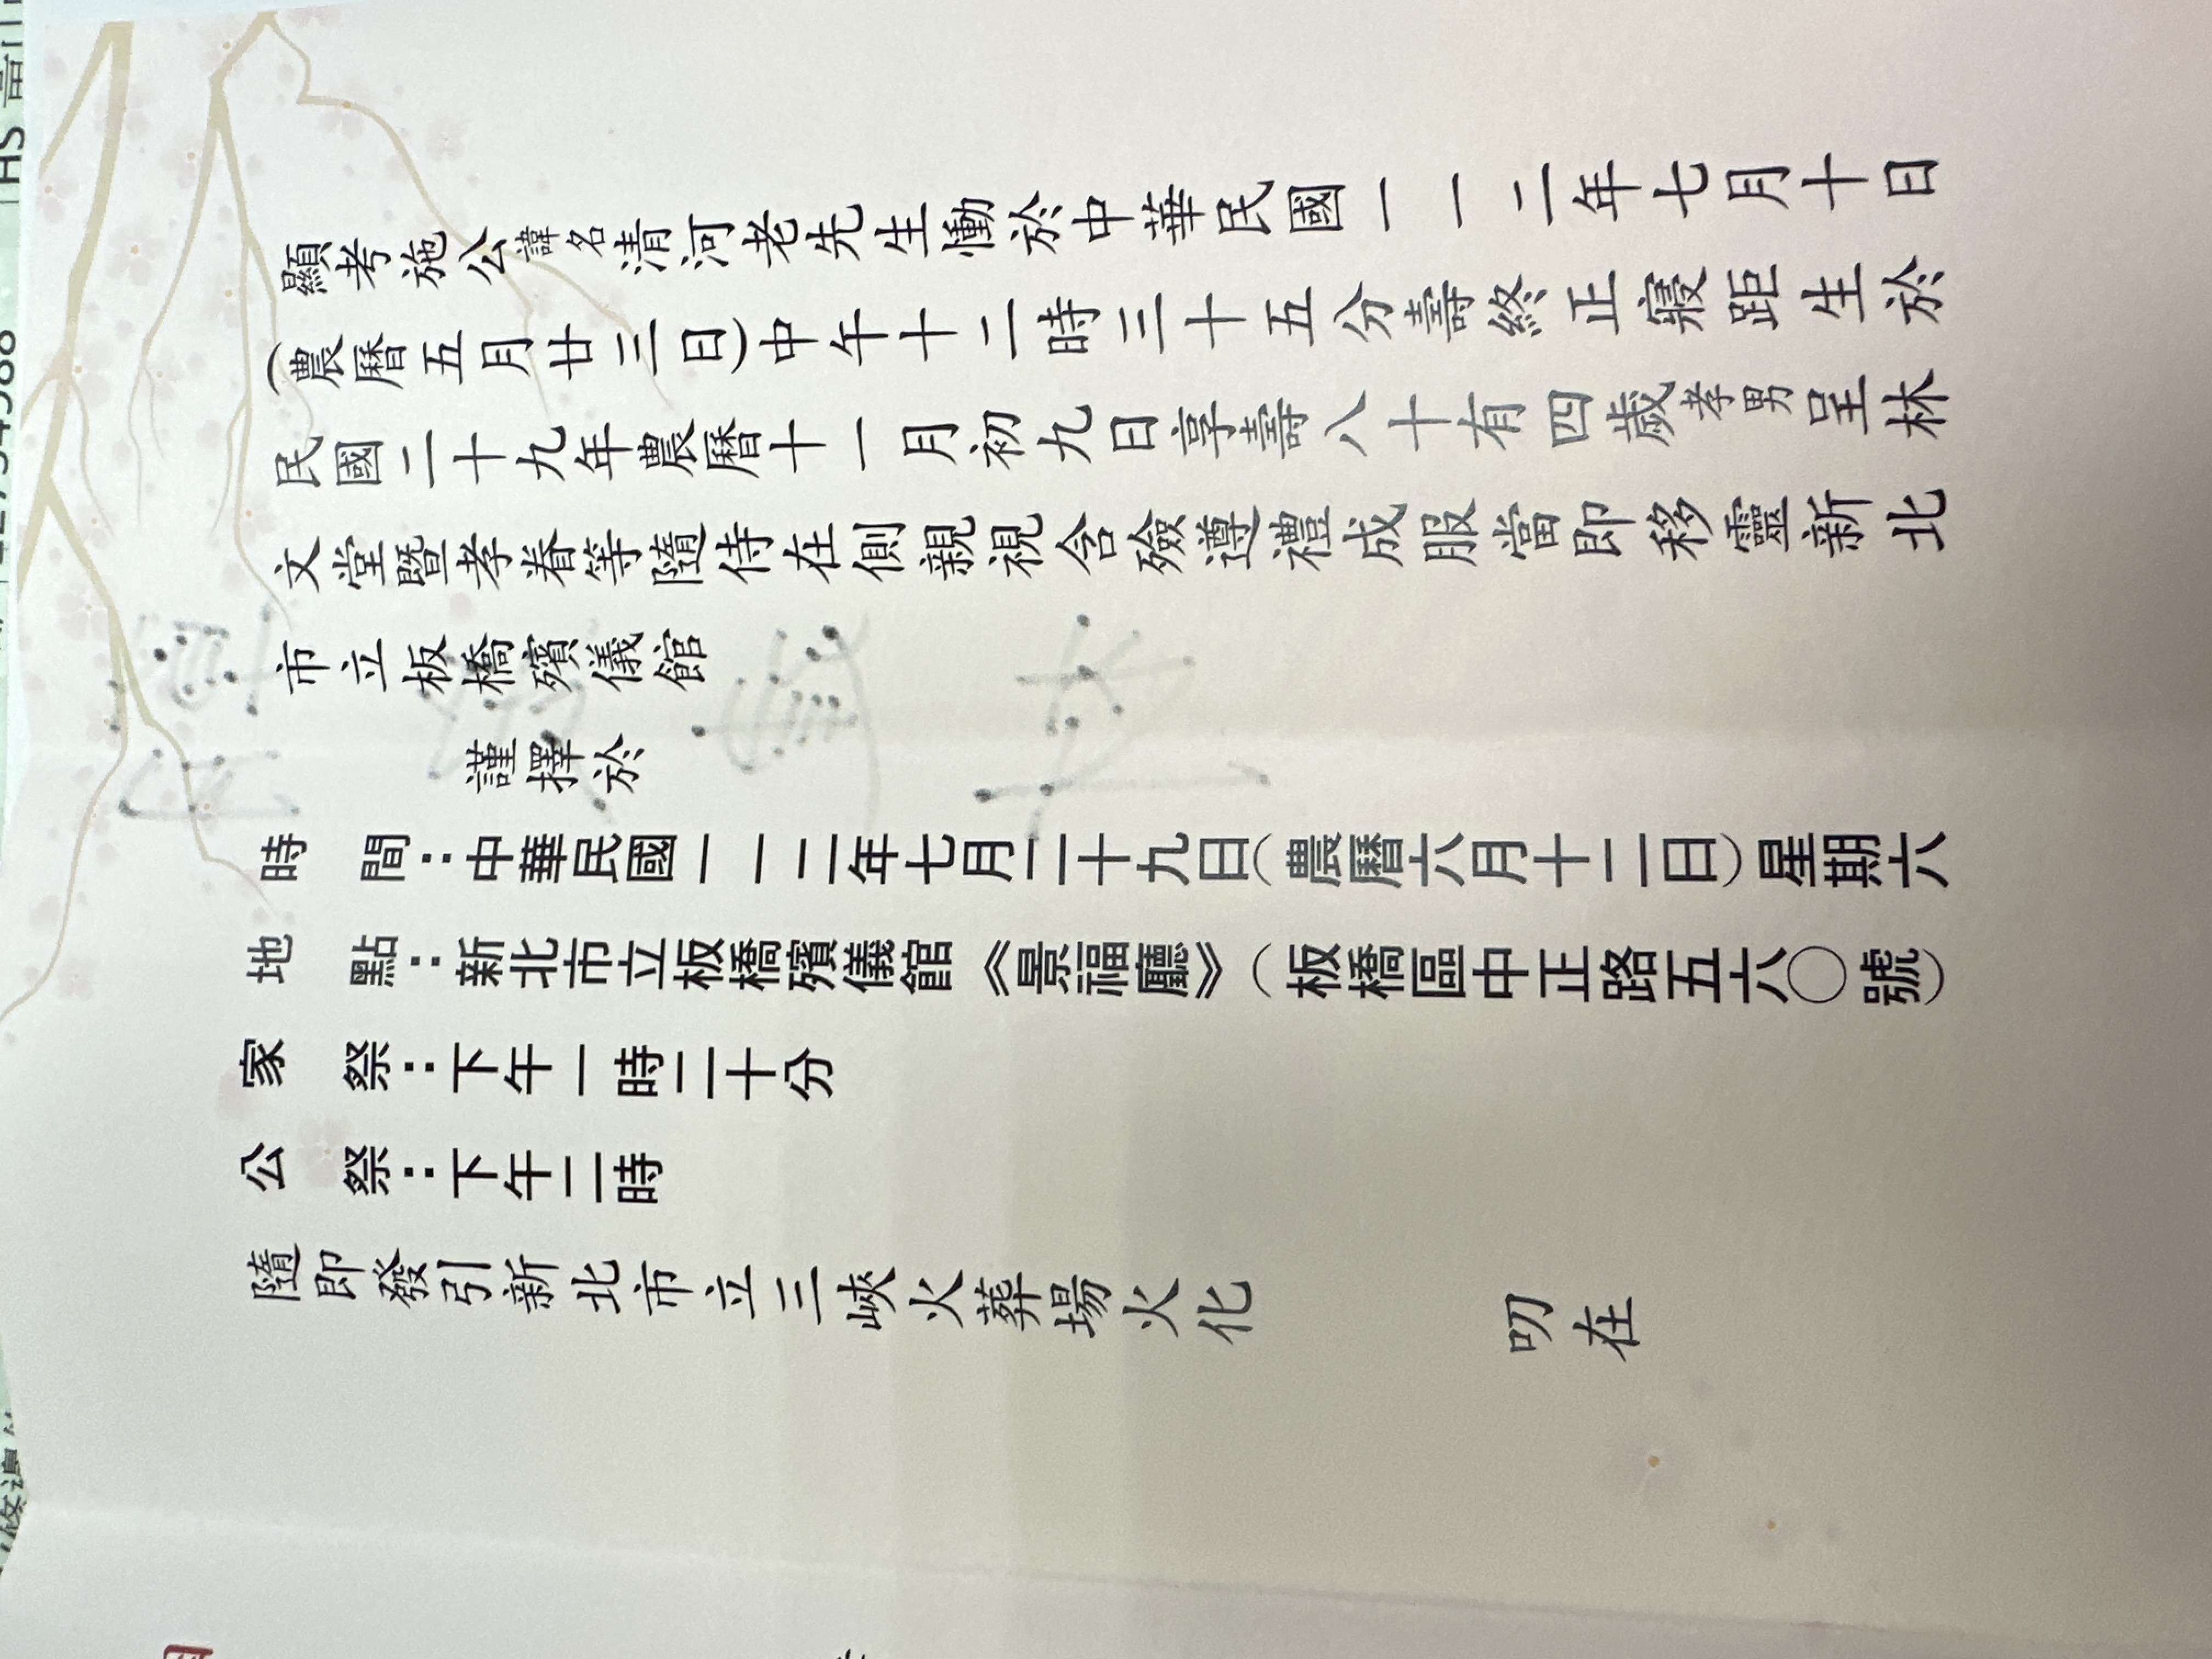 顯考施公諱名清河老先生慟於中華民國一一二年七月十日
(農曆五月廿三日)中午十二時三十五分壽終正寢距生於
民國二十九年農曆十一月初九日享壽八十有四歲孝男呈林
文堂暨孝眷等隨侍在側親視含殮遵禮成服當即移靈新北
市立板橋殯儀館
謹擇於
時間：中華民國一一二年七月二十九日(農曆六月十二日)星期六
地點：新北市立板橋殯儀館《景福廳》(板橋區中正路五六○號)
家祭：下午一時二十分
公祭：下午二時
隨即發引新北市立三峽火葬場火化
叨在